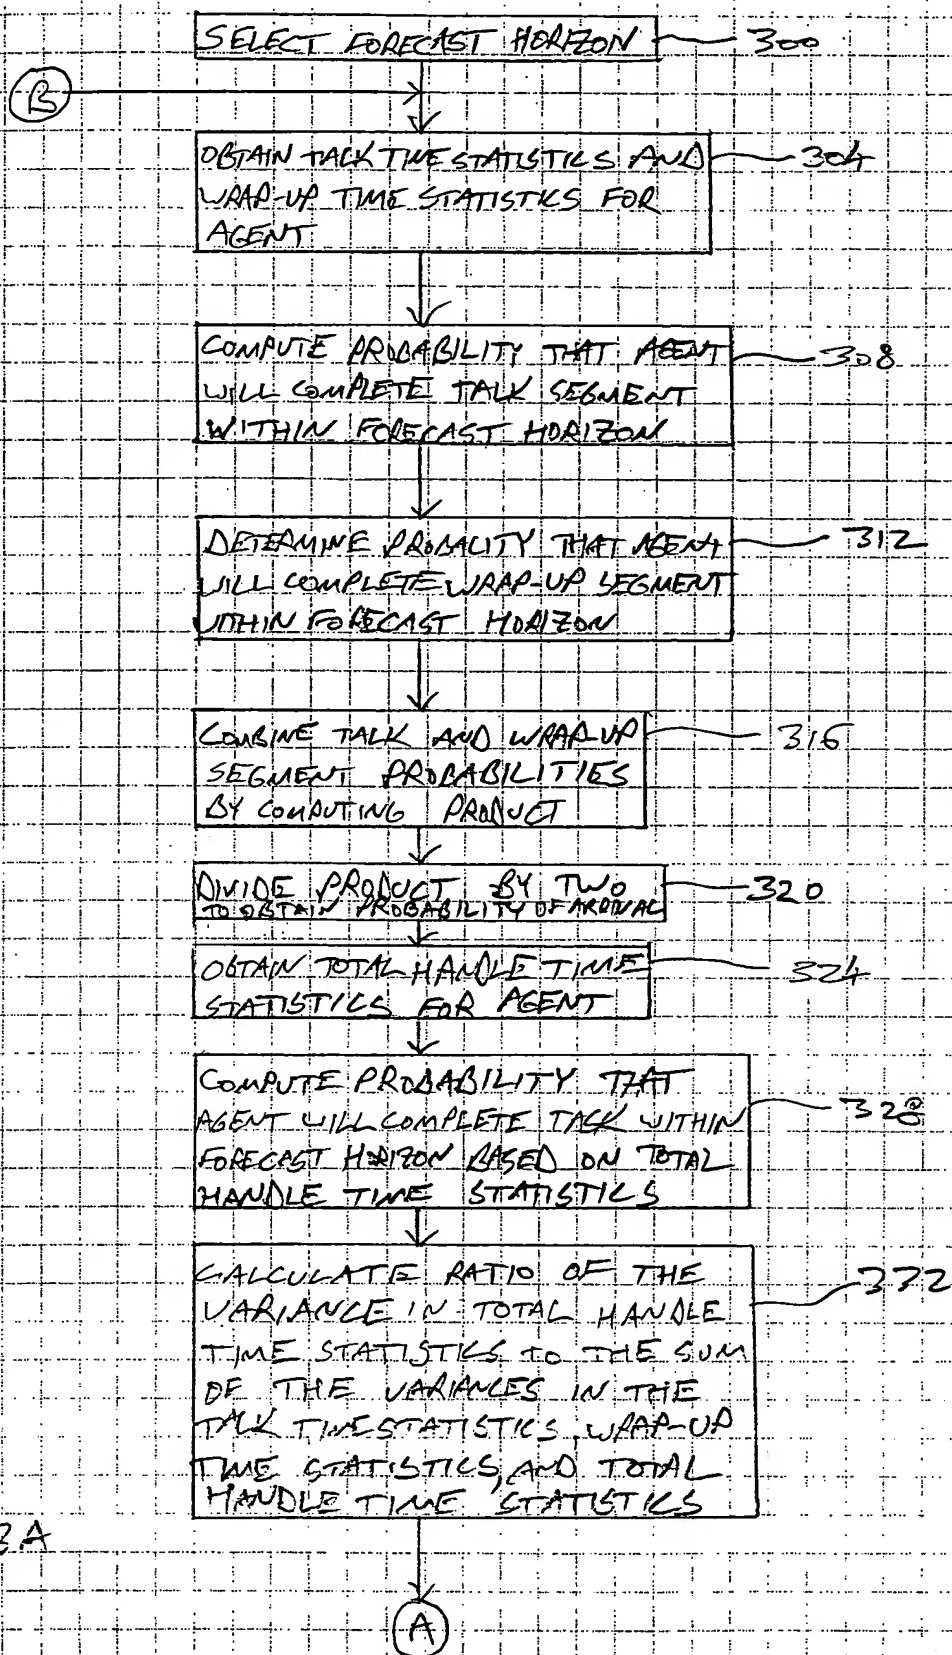 SELECT FORECAST HORIZON 300
B
OBTAIN TALK TIME STATISTICS AND 304
WRAP-UP TIME STATISTICS FOR
AGENT
COMPUTE PROBABILITY THAT AGENT 308
WILL COMPLETE TALK SEGMENT
WITHIN FORECAST HORIZON
DETERMINE PROBALITY THAT AGENT 312
WILL COMPLETE WRAP-UP SEGMENT
WITHIN FORECAST HORIZON
COMBINE TALK AND WRAP-UP 316
SEGMENT PROBABILITIES
BY COMPUTING PRODUCT
DIVIDE PRODUCT BY TWO 320
TO OBTAIN PROBABILITY OF ARRIVAL
OBTAIN TOTAL HANDLE TIME 324
STATISTICS FOR AGENT
COMPUTE PROBABILITY THAT
AGENT WILL COMPLETE TASK WITHIN 328
FORECAST HORIZON BASED ON TOTAL
HANDLE TIME STATISTICS
CALCULATE RATIO OF THE 332
VARIANCE IN TOTAL HANDLE
TIME STATISTICS TO THE SUM
OF THE VARIANCES IN THE
TALK TIME STATISTICS, WRAP-UP
TIME STATISTICS, AND TOTAL
HANDLE TIME STATISTICS
3A
A